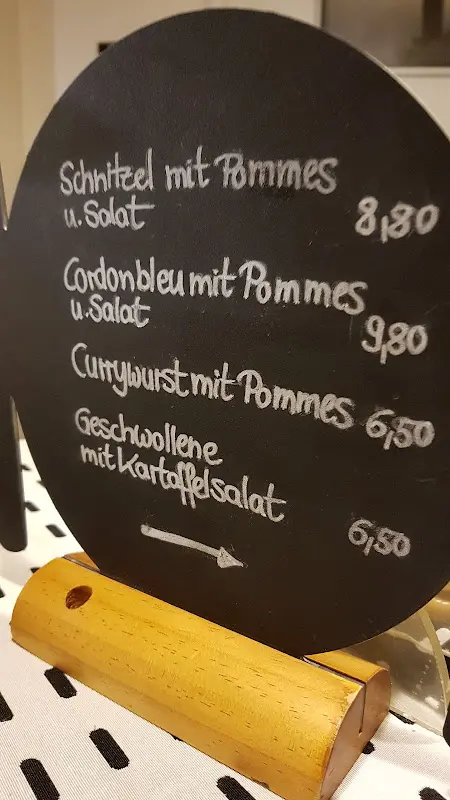 Schnitzel mit Pommes
u. Salat
8,80
Cordonbleu mit Pommes
u. Salat
9,80
Currywurst mit Pommes 6,50
Geschwollene
mit Kartoffelsalat
6,50